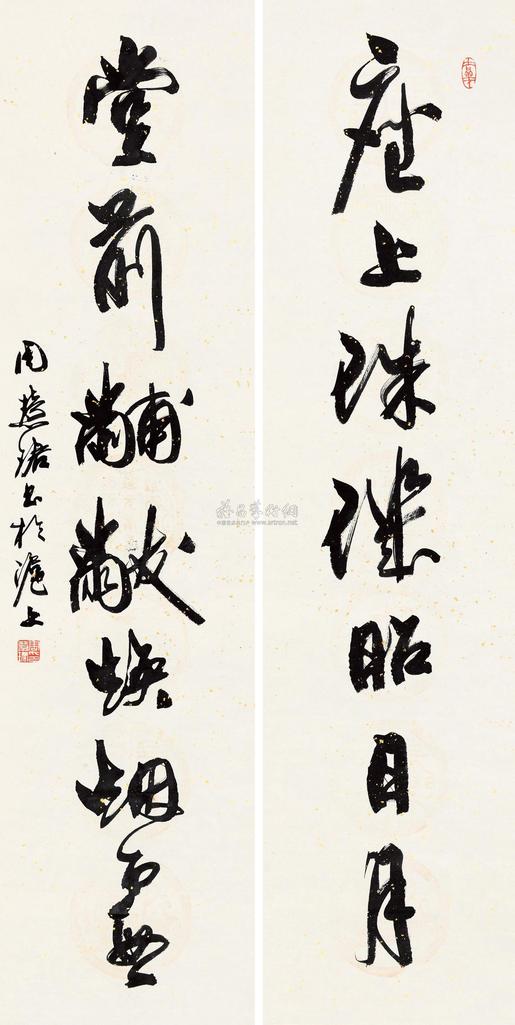 座上珠玑昭日月
堂前黼黻焕烟霞
周慧珺书于沪上
www.artron.net